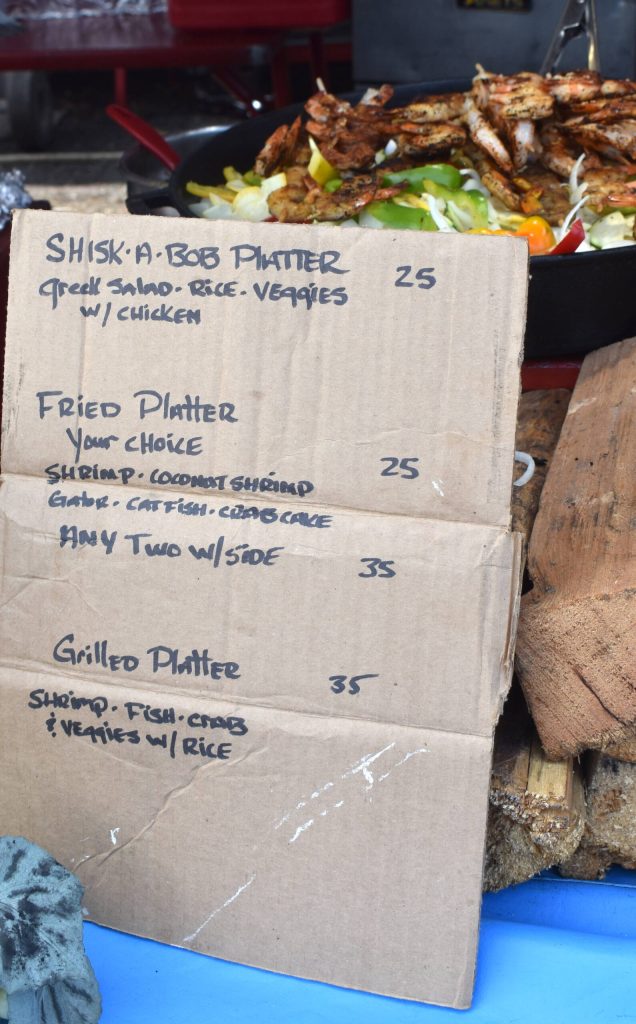 SHISK·A·BOB PLATTER 25
Greek Salad · RICE · VEGGIES
W/ CHICKEN
FRIED Platter
Your CHOICE
SHRIMP · COCONUT SHRIMP 25
GATOR · CATFISH · CRABCAKE
ANY TWO W/ SIDE 35
Grilled Platter 35
SHRIMP · FISH · CRAB
& VEGGIES W/ RICE